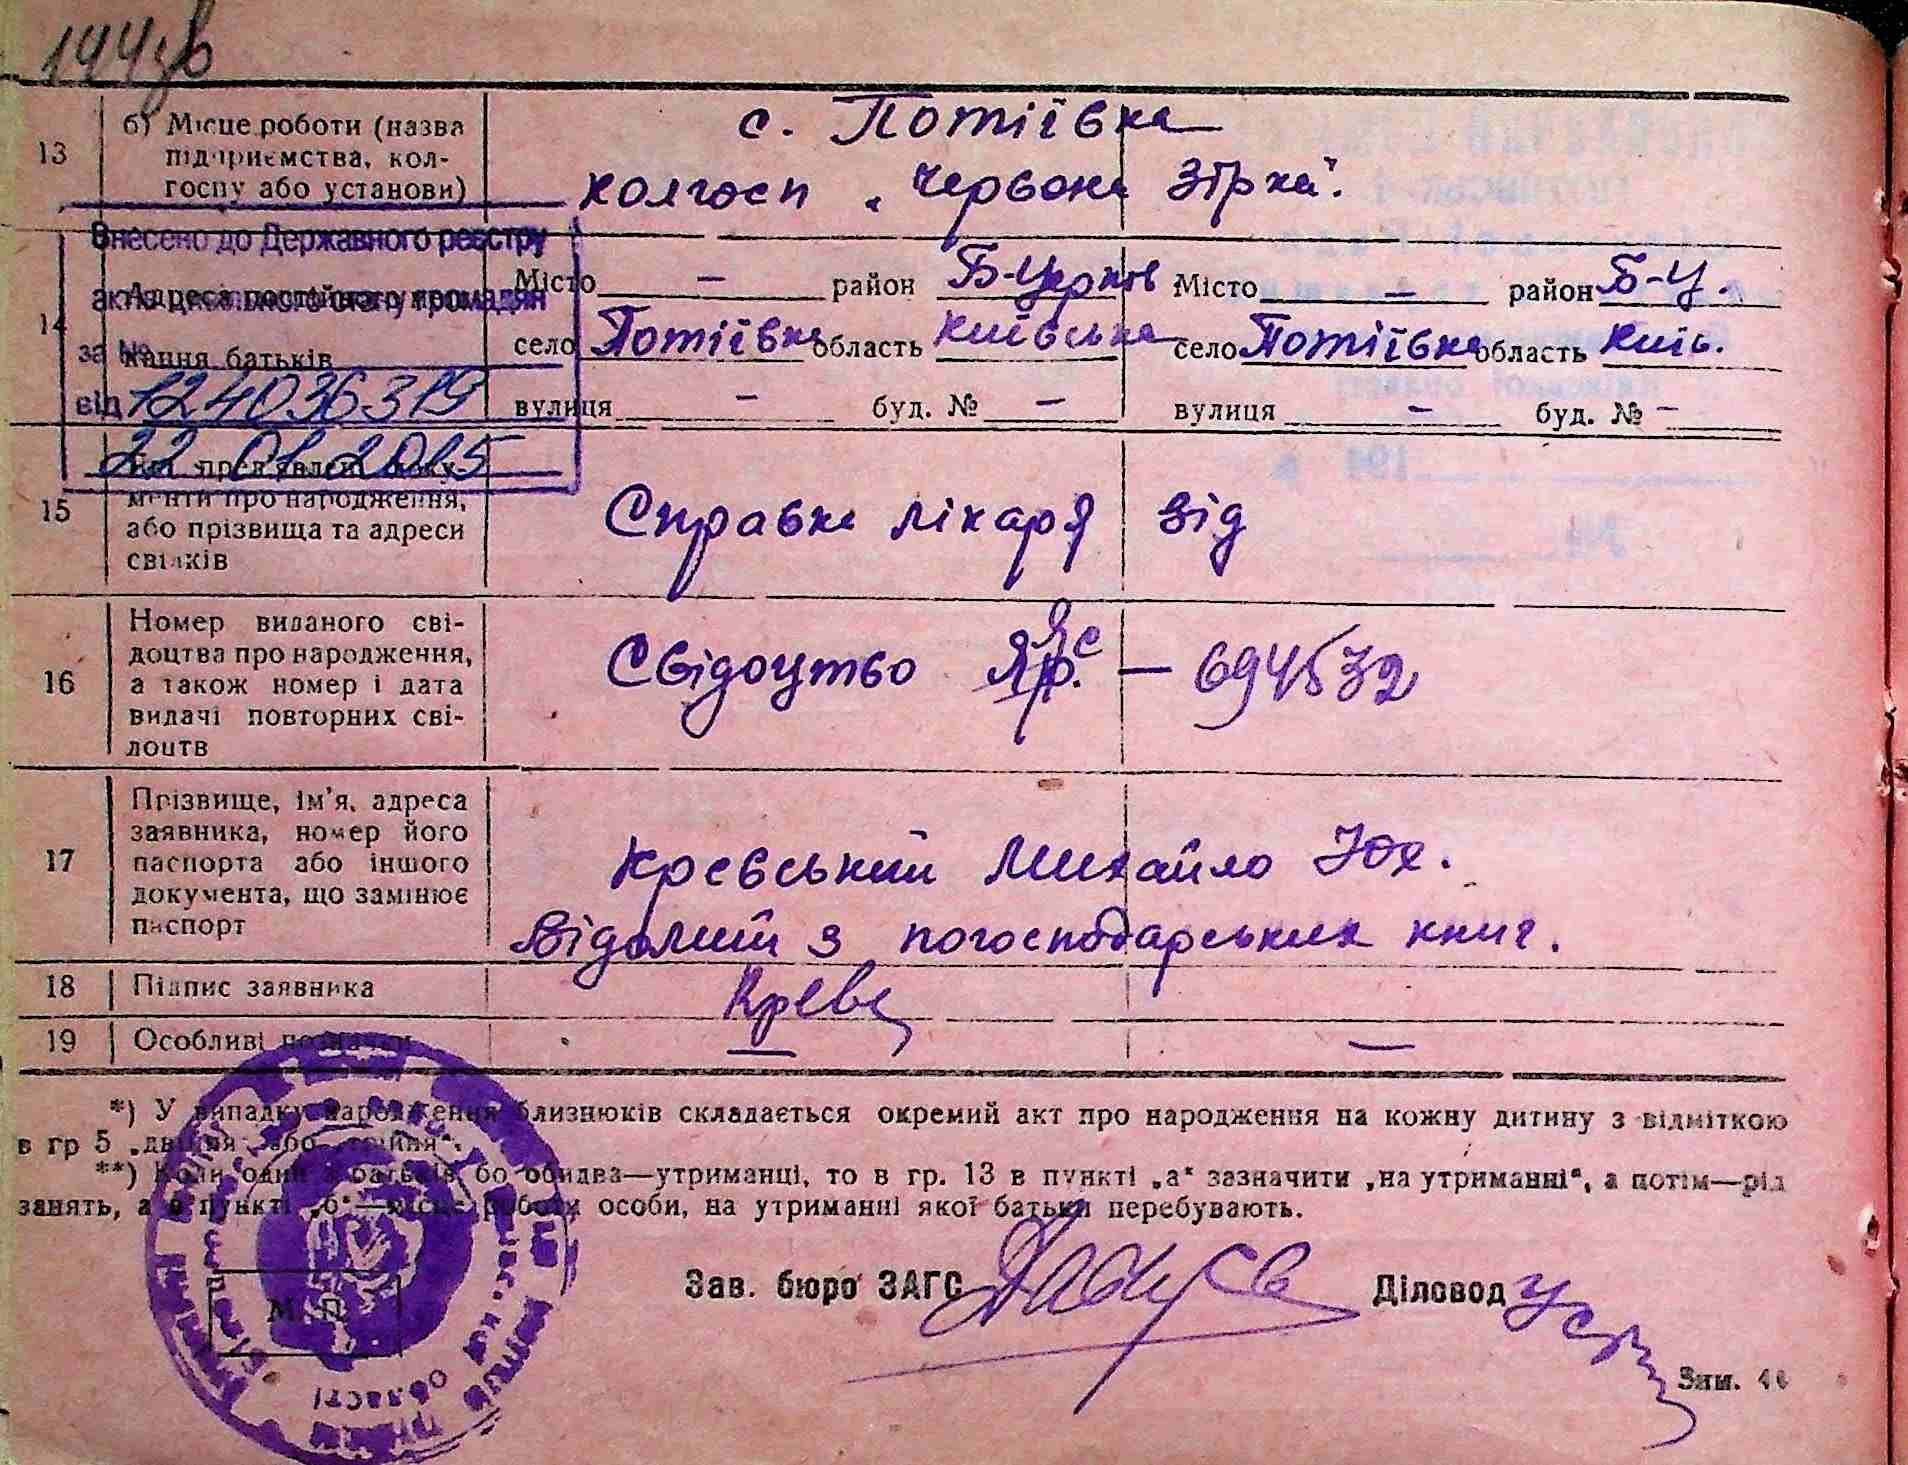 144зв
13
б) Місце роботи (назва
підприємства, кол-
госпу або установи)
с. Потіївка
колгосп „Червона Зірка".
Внесено до Державного реєстру
актів цивільного стану громадян
за №
124036319
від 22 01 2015
14
Адреса постійного
кання батьків
Місто — район Б-Церків.
село Потіївка область Київська
вулиця — буд. № —
Місто — район Б-Ц.
село Потіївка область Київ.
вулиця — буд. № —
15
Які пред'явлені доку-
менти про народження,
або прізвища та адреси
свідків
Справка лікаря від
16
Номер виданого сві-
доцтва про народження,
а також номер і дата
видачі повторних сві-
доцтв
Свідоцтво ЯС — 694532
17
Прізвище, ім'я, адреса
заявника, номер його
паспорта або іншого
документа, що замінює
паспорт
Креєвський Михайло Юх.
відомий з погосподарських книг.
18
Підпис заявника
19
Особливі позначки
—
—
*) У випадку народження близнюків складається окремий акт про народження на кожну дитину з відміткою
в гр 5 „двійня" або „трійня".
**) Коли один з батьків бо обидва—утриманці, то в гр. 13 в пункті „а" зазначити „на утриманні", а потім—рід
занять, а в пункті „б"—місце роботи особи, на утриманні якої батьки перебувають.
Зав. бюро ЗАГС
Діловод
М. П.
області
Зам.